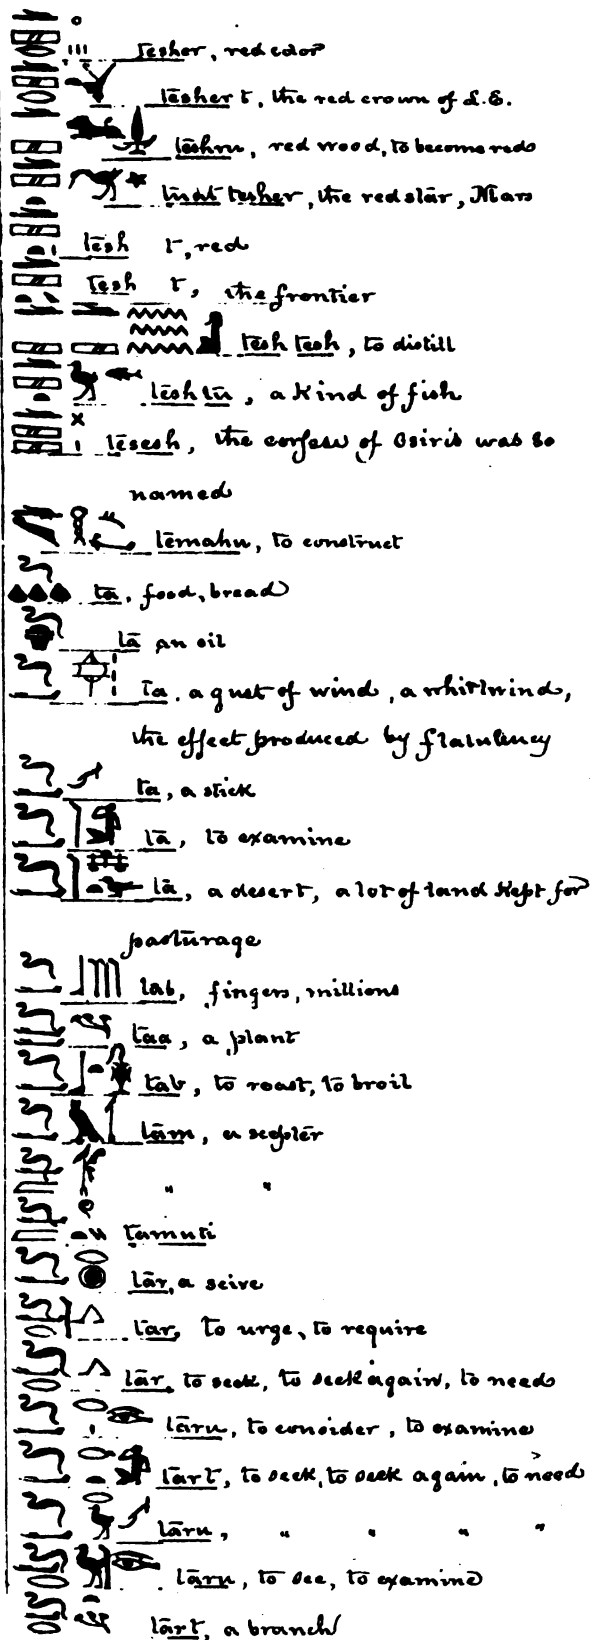 tesher, red color
tesher t, the red crown of L.E.
teshru, red wood, to become red
tesher, the red star, Mars
tesh t, red
tesh t, the frontier
tesh tesh, to distill
tesh tu, a kind of fish
tesesh, the of Osiris was so
named
temahu, to construct
ta, food, bread
ta an oil
ta, a gust of wind, a whirlwind,
the effect produced by flatulency
ta, a stick
ta, to examine
ta, a desert, a lot of land kept for
pasturage
tab, fingers, millions
taa, a plant
tab, to roast, to broil
tam, a scepter
" "
tamuti
tar, a seive
tar, to urge, to require
tar, to seek, to seek again, to need
taru, to consider, to examine
tart, to seek, to seek again, to need
taru, " " " "
taru, to see, to examine
tart, a branch